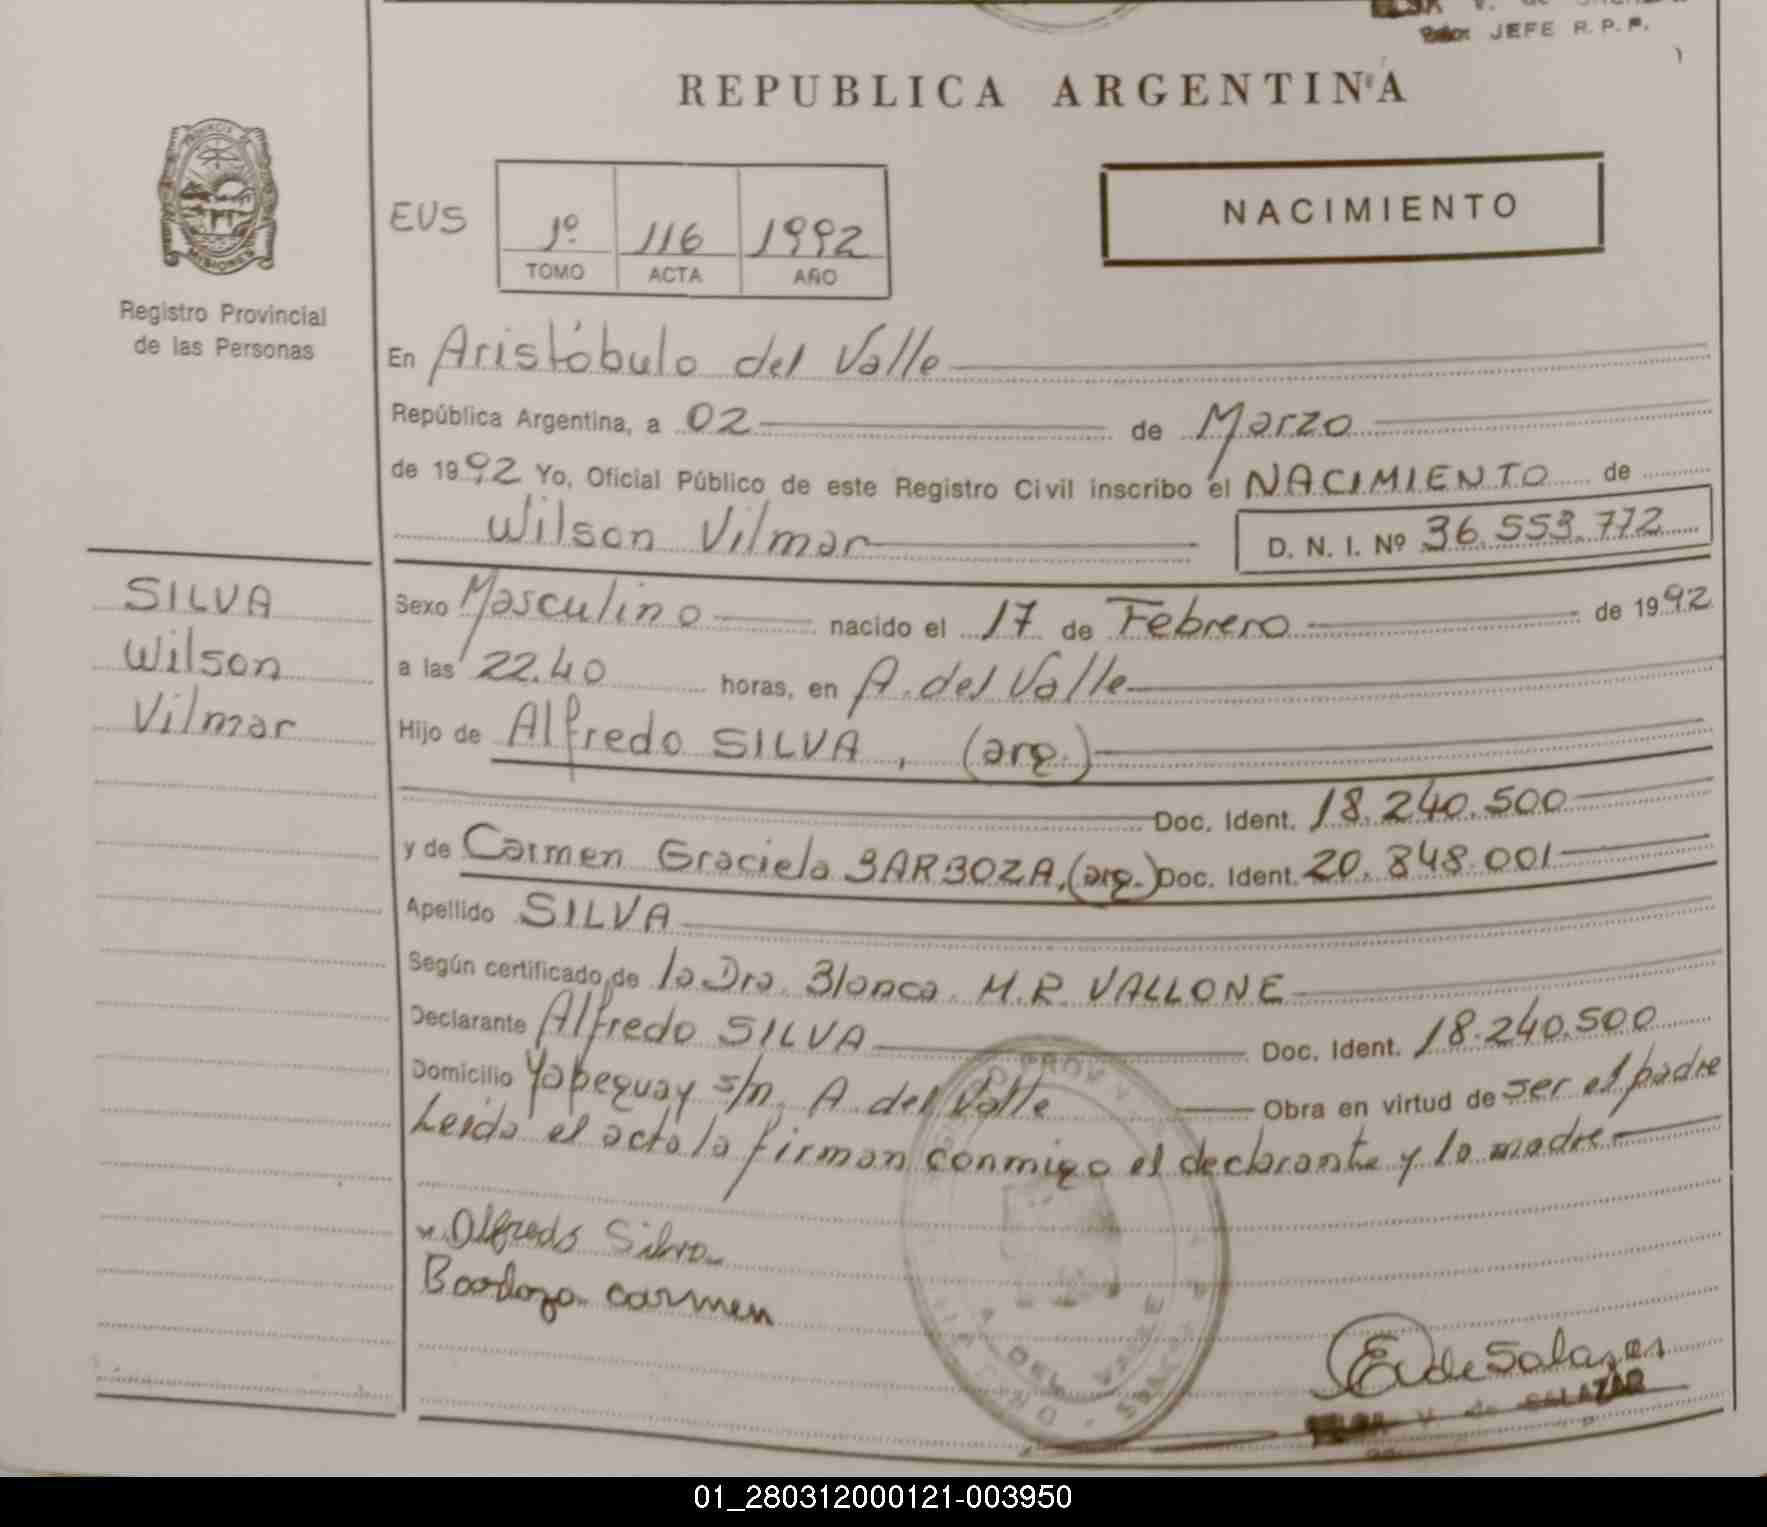 V. de
JEFE R.P.P.
REPUBLICA ARGENTINA
PROVINCIA DE
MISIONES
Registro Provincial
de las Personas
EUS
1º 116 1992
TOMO ACTA AÑO
NACIMIENTO
En Aristóbulo del Valle
República Argentina, a 02 de Marzo
de 1992 Yo, Oficial Público de este Registro Civil inscribo el NACIMIENTO de
Wilson Vilmar D. N. I. Nº 36.553.772
SILVA
Wilson
Vilmar
Sexo Masculino nacido el 17 de Febrero de 1992
a las 22.40 horas, en A. del Valle
Hijo de Alfredo SILVA, (arg.)
Doc. Ident. 18.240.500
y de Carmen Graciela BARBOZA, (arg.) Doc. Ident. 20.848.001
Apellido SILVA
Según certificado de la Dra. Blanca M.R. VALLONE
Declarante Alfredo SILVA Doc. Ident. 18.240.500
Domicilio Yabeguay s/n. A. del Valle Obra en virtud de ser el padre
Leida el acta la firman conmigo el declarante y la madre
Alfredo Silva
Carmen
A. DEL VALLE
E de Salazar
V. de SALAZAR
01_280312000121-003950